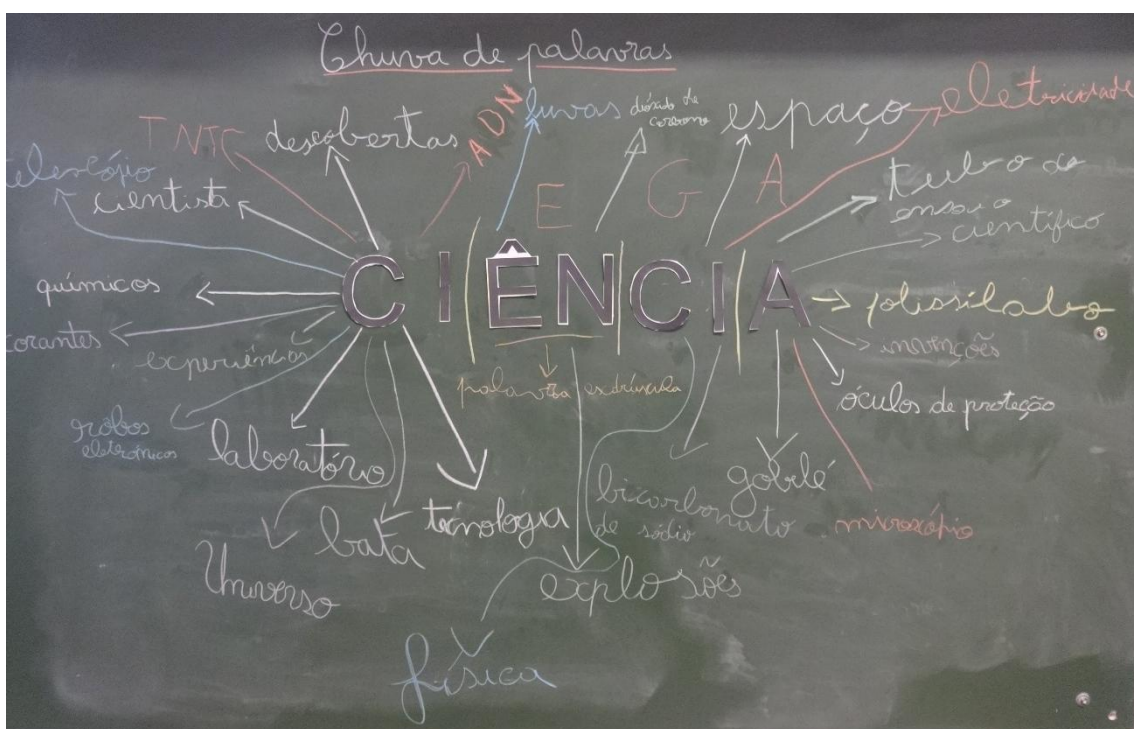 Chuva de palavras
TNTC
descobertas
ADN
luvas
dióxido de
carbono
espaço
eletricidade
telescópio
cientista
E G A
tubo de
ensaio
científico
químicos
CIÊNCIA
polissílabo
corantes
experiências
invenções
palavra esdrúxula
óculos de proteção
robos
eletrónicos
laboratório
gobelé
bicarbonato
de sódio
tecnologia
bata
microscópio
Universo
explosões
física